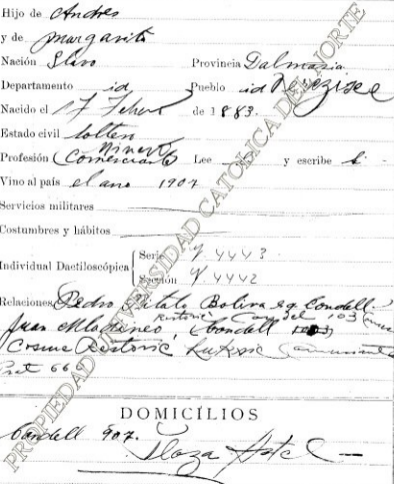 Hijo de Andrés
y de Margarita
Nación Slavo Provincia Dalmasia
Departamento id Pueblo id
Nacido el 17 de 1883.
Estado civil Soltero
Minero
Profesión (Comerciante) Lee y escribe
Vino al país el ano 1907
Servicios militares
Costumbres y hábitos
Individual Dactiloscópica Serie V. 4443
Sección V. 4442
Relaciones Pedro Bolivar esq Condell.
Juan Condell
Cosme Restovic Luksic
Prat 66
DOMICÍLIOS
Condell 907.
Plaza
PROPIEDAD UNIVERSIDAD CATOLICA DEL NORTE